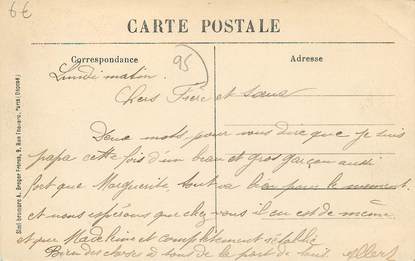 6€
CARTE POSTALE
Correspondance
Adresse
95
Lundi matin.
Chers Frère et Sœur
Deux mots pour vous dire que je suis
papa cette fois d'un beau et gros garçon aussi
fort que Marguerite tout va bien pour le moment
et nous espérons que chez vous il en est de même
et que Madeleine est complètement rétablie
Bien des choses à tous de la part de tous.